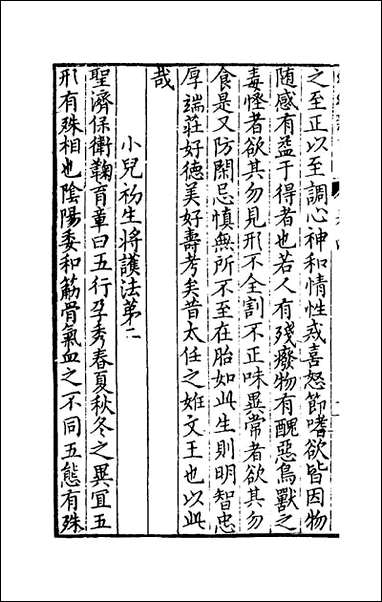 之至正以至調心神和情性戒喜怒節嗜欲皆因物
随感有益于得者也若人有殘癈物有醜惡鳥獸之
毒怪者欲其勿見形不全割不正味異常者欲其勿
食是又防閑忌慎無所不至在胎如此生則明智忠
厚端莊好德美好壽考矣昔太任之姙文王也以此
哉
小兒初生将護法第二
聖濟保衛鞠育章曰五行孕秀春夏秋冬之異宜五
形有殊相也陰陽委和筋骨氣血之不同五態有殊